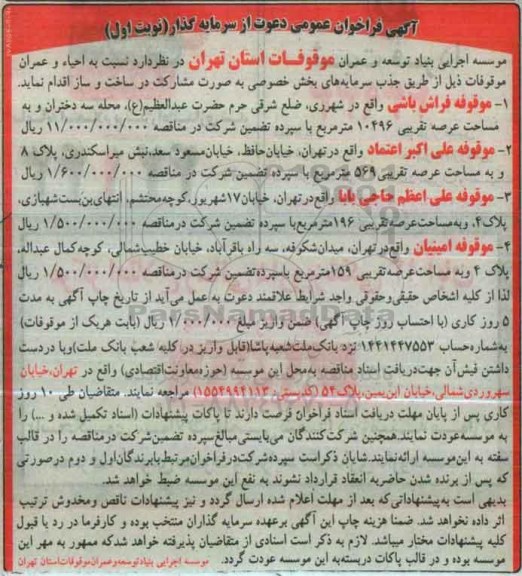 آگهی فراخوان عمومی دعوت از سرمایه گذار(نوبت اول)
موسسه اجرایی بنیاد توسعه و عمران موقوفات استان تهران در نظردارد نسبت به احیاء و عمران
موقوفات ذیل از طریق جذب سرمایه‌های بخش خصوصی به صورت مشارکت در ساخت و ساز اقدام نماید.
۱- موقوفه فراش باشی واقع در شهرری، ضلع شرقی حرم حضرت عبدالعظیم(ع)، محله سه دختران و به
مساحت عرصه تقریبی ۱۰۴۹۶ مترمربع با سپرده تضمین شرکت در مناقصه ۱۱/۰۰۰/۰۰۰/۰۰۰ ریال
۲- موقوفه علی اکبر اعتماد واقع درتهران، خیابان‌حافظ، خیابان‌مسعود سعد،نبش میراسکندری، پلاک ۸
و به مساحت عرصه تقریبی ۵۶۹ مترمربع با سپرده تضمین شرکت در مناقصه ۱/۶۰۰/۰۰۰/۰۰۰ ریال
۳- موقوفه علی اعظم حاجی بابا واقع‌درتهران، خیابان۱۷شهریور،کوچه‌محتشم، انتهای‌بن‌بست‌شهبازی،
پلاک۴، وبه‌مساحت‌عرصه‌تقریبی ۱۹۶مترمربع‌با سپرده‌تضمین شرکت درمناقصه ۱/۵۰۰/۰۰۰/۰۰۰ ریال
۴- موقوفه امینیان واقع‌درتهران، میدان‌شکوفه، سه راه باقرآباد، خیابان خطیب‌شمالی، کوچه‌کمال عبداله،
پلاک ۴ وبه مساحت‌عرصه‌تقریبی ۱۵۹مترمربع باسپرده‌تضمین شرکت درمناقصه ۱/۵۰۰/۰۰۰/۰۰۰ ریال
لذا از کلیه اشخاص حقیقی‌وحقوقی واجد شرایط علاقمند دعوت به عمل می‌آید از تاریخ چاپ آگهی به مدت
۵ روز کاری (با احتساب روز چاپ آگهی) ضمن واریز مبلغ ۱/۰۰۰/۰۰۰ ریال (بابت هریک از موقوفات)
به‌شماره‌حساب ۱۴۴۱۴۴۷۵۵۳ نزد بانک‌ملت‌شعبه‌پاشا(قابل واریز در کلیه شعب بانک ملت)وبا دردست
داشتن فیش‌آن جهت‌دریافت اسناد مناقصه به‌محل این موسسه (حوزه‌معاونت‌اقتصادی) واقع در تهران،خیابان
سهروردی‌شمالی،خیابان ابن‌یمین،پلاک۵۴ (کدپستی: ۱۵۵۴۹۹۴۱۱۳) مراجعه نمایند. متقاضیان طی ۱۰ روز
کاری پس از پایان مهلت دریافت اسناد فراخوان فرصت دارند تا پاکات پیشنهادات (اسناد تکمیل شده و ...) را
به موسسه‌عودت نمایند.همچنین شرکت‌کنندگان می‌بایستی مبالغ‌سپرده تضمین‌شرکت درمناقصه را در قالب
سفته به این‌موسسه ارائه‌نمایند.شایان ذکراست سپرده‌شرکت‌درفراخوان‌مرتبط‌بابرندگان‌اول و دوم درصورتی
که پس از برنده شدن حاضربه انعقاد قرارداد نشوند به نفع این موسسه ضبط خواهد شد.
بدیهی است به‌پیشنهاداتی‌که بعد از مهلت اعلام شده ارسال گردد و نیز پیشنهادات ناقص ومخدوش ترتیب
اثر داده نخواهد شد. ضمنا هزینه چاپ این آگهی برعهده سرمایه گذاران منتخب بوده و کارفرما در رد یا قبول
کلیه پیشنهادات مختار میباشد. لازم به ذکر است اسنادی از متقاضیان پذیرفته خواهد شدکه ممهور به مهر این
موسسه بوده و در قالب پاکات دربسته‌به این موسسه عودت گردد.
موسسه اجرایی بنیادتوسعه‌وعمران‌موقوفات‌استان تهران
ParsNamadData